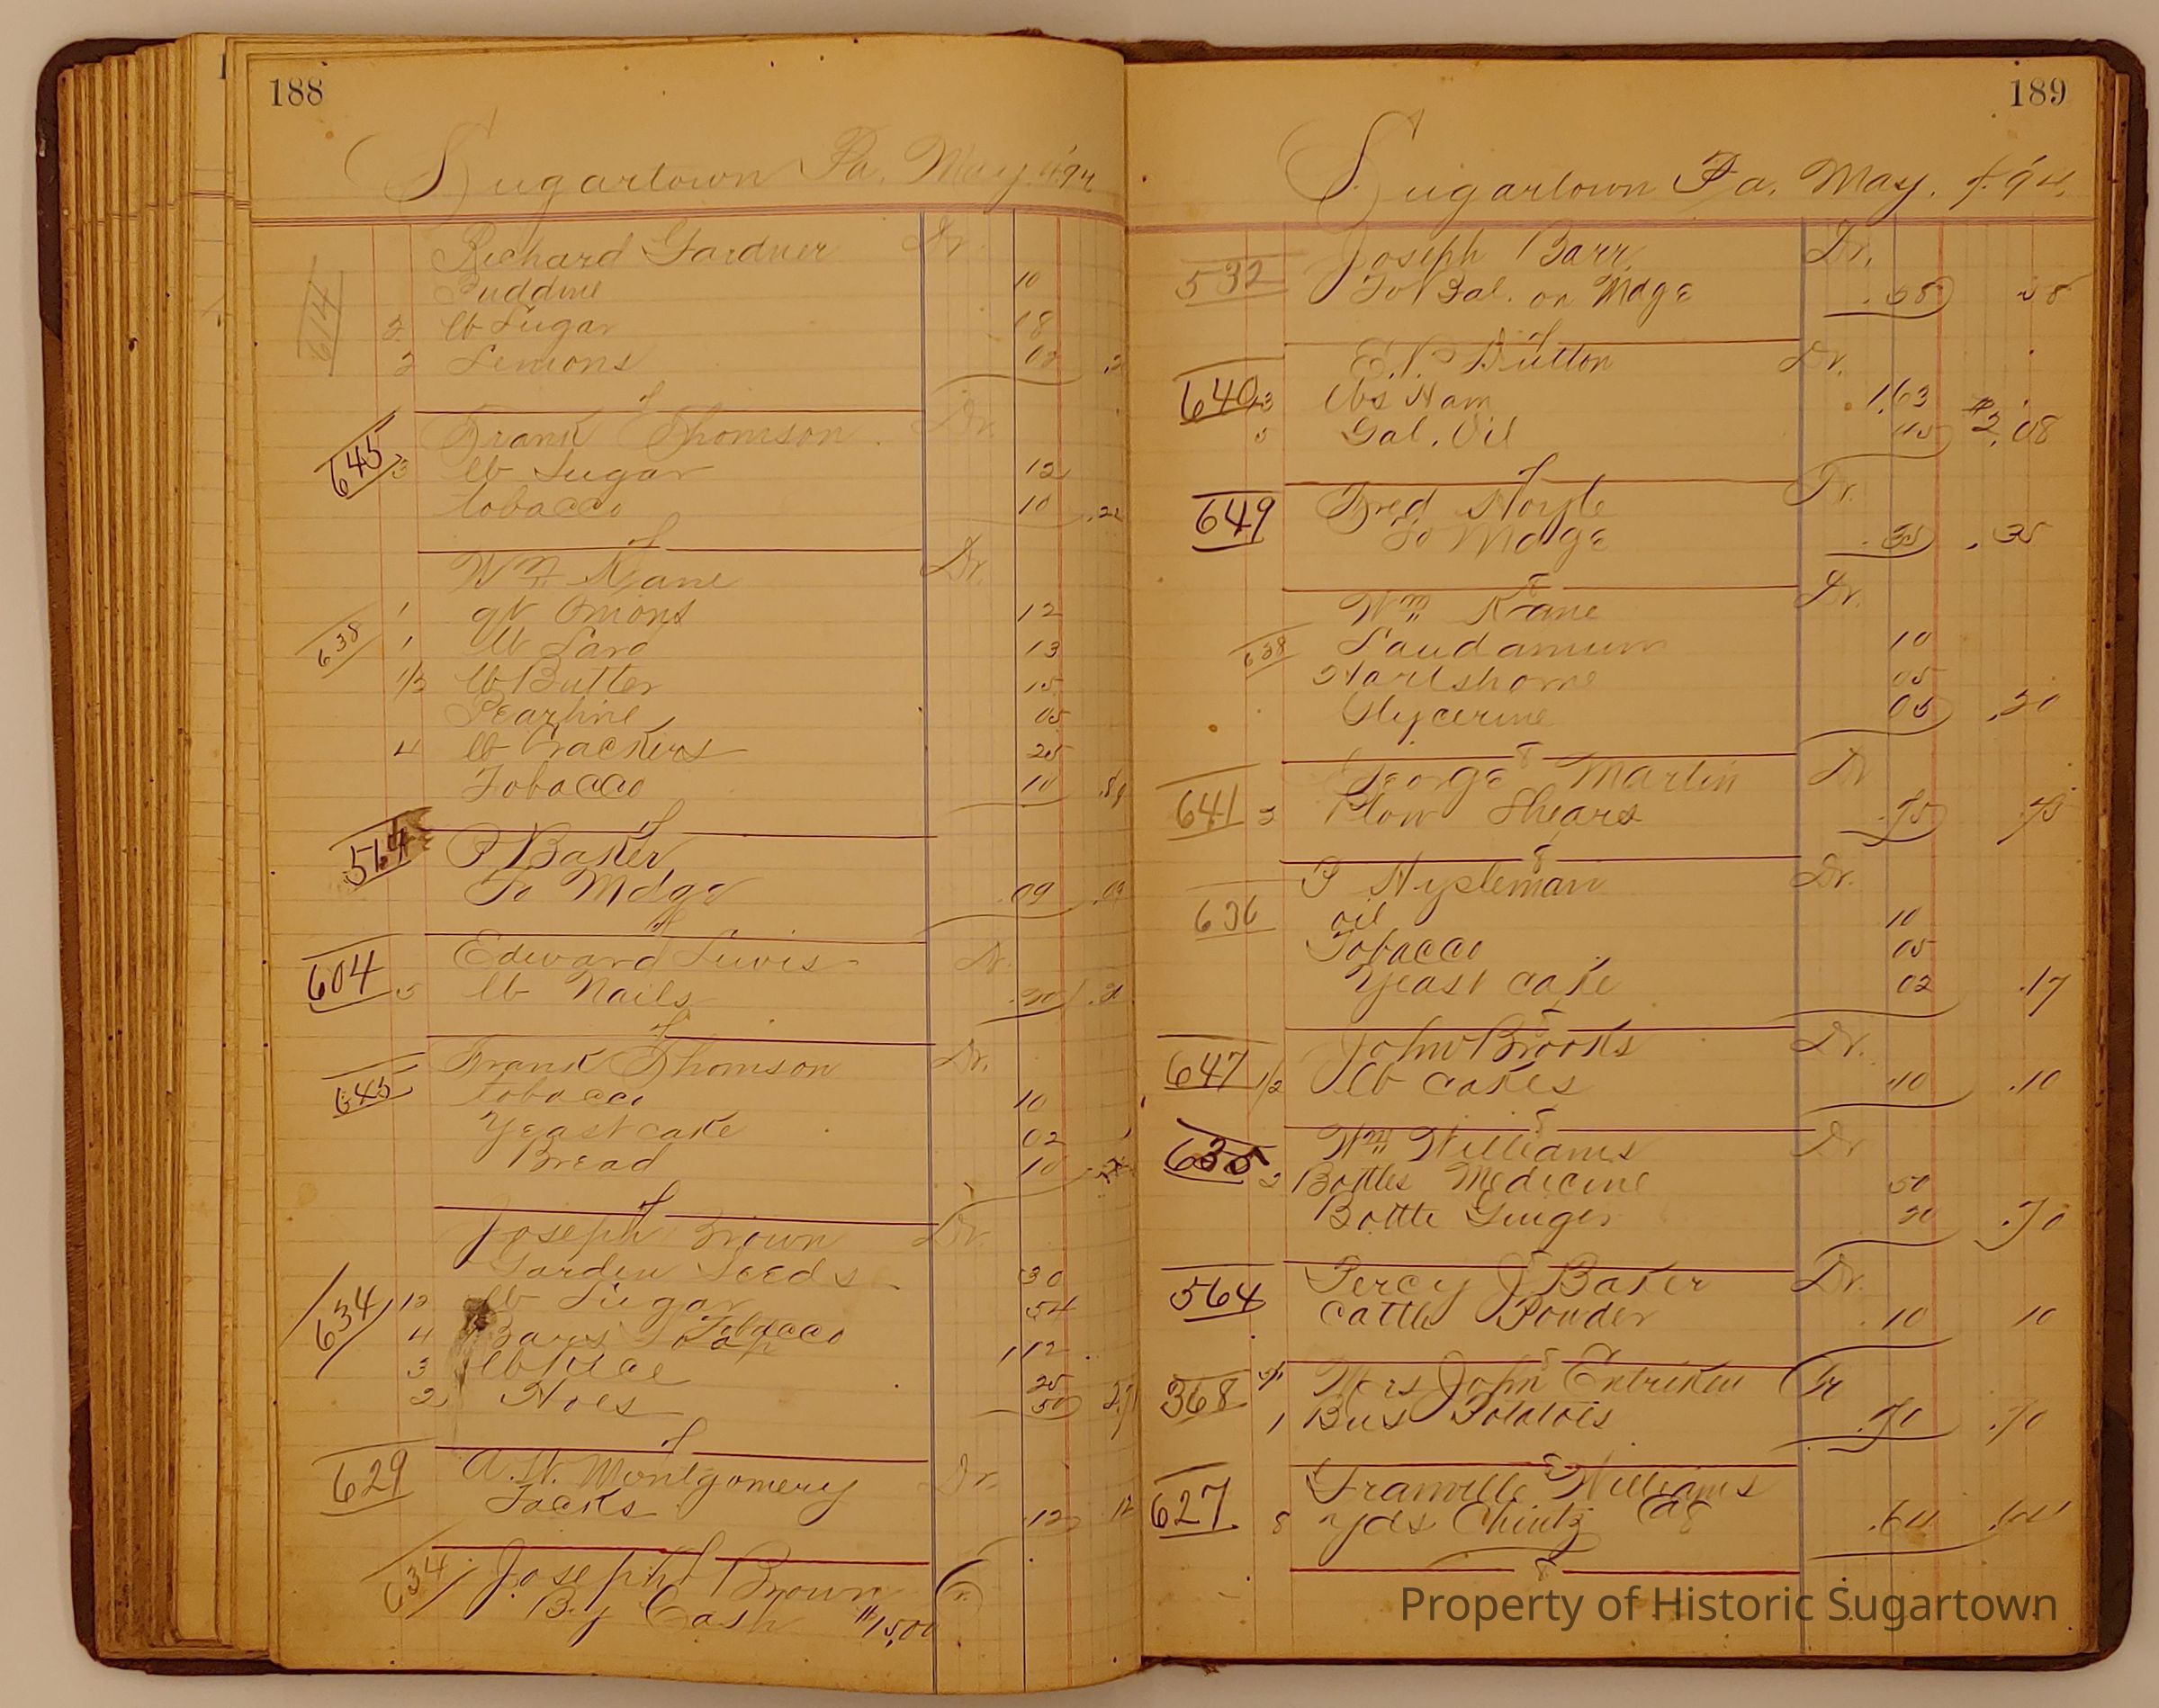 188
Sugartown Pa. May. 4. '94
614
Richard Gardner Dr.
10
2 lb Sugar 18
2 Lemons 02
4
645 Frank Thomson Dr.
3 lb Sugar 12
tobacco 10 .22
4
Wm Kane Dr.
638
1 qt Onions 12
1 lb Lard 13
1/2 lb Butter 15
Pearline 05
4 lb Crackers 25
Tobacco 10
4
564 P Baker
To Mdge .09 .09
4
604 Edward Lewis Dr.
5 lb Nails .20
4
645 Frank Thomson Dr.
tobacco 10
Yeast cake 02
Bread 10
4
Joseph Brown Dr.
634 Garden Seeds 30
12 lb Sugar 54
4 Bars Soap Tobacco 1,12
3 lb Rice 25
2 Hoes 50
4
629 A. W. Montgomery Dr.
Tacks .12 .12
4
634 Joseph Brown Cr.
By Cash #15,00
189
Sugartown Pa. May. 4. '94
532 Joseph Barr Dr.
To Bal. on Mdge .58 .58
4
640 E. P. Dutton Dr.
13 lbs Ham 1,63
5 Gal. Oil .45 #2,08
4
649 Fred Hoyle Dr.
To Mdge .35 .35
5
Wm Kane Dr.
638 Laudanum 10
Hartshorne 05
Glycerine 05 .20
5
George Martin Dr
641 3 Plow Shears .75 .75
5
Hysteman Dr.
636 oil 10
Tobacco 05
Yeast cake 02 .17
5
647 John Brooks Dr.
1/2 lb cakes .10 .10
5
635 Wm Williams Dr
2 Bottles Medicine 50
Bottle Ginger 20 .70
5
564 Percy J Baker Dr.
Cattle Powder .10 10
5
368 Mrs John Entriken Cr
1 Bus Potatoes .70 .70
5
627 Granville Williams
8 yds Chintz @8 .64 .64
5
Property of Historic Sugartown